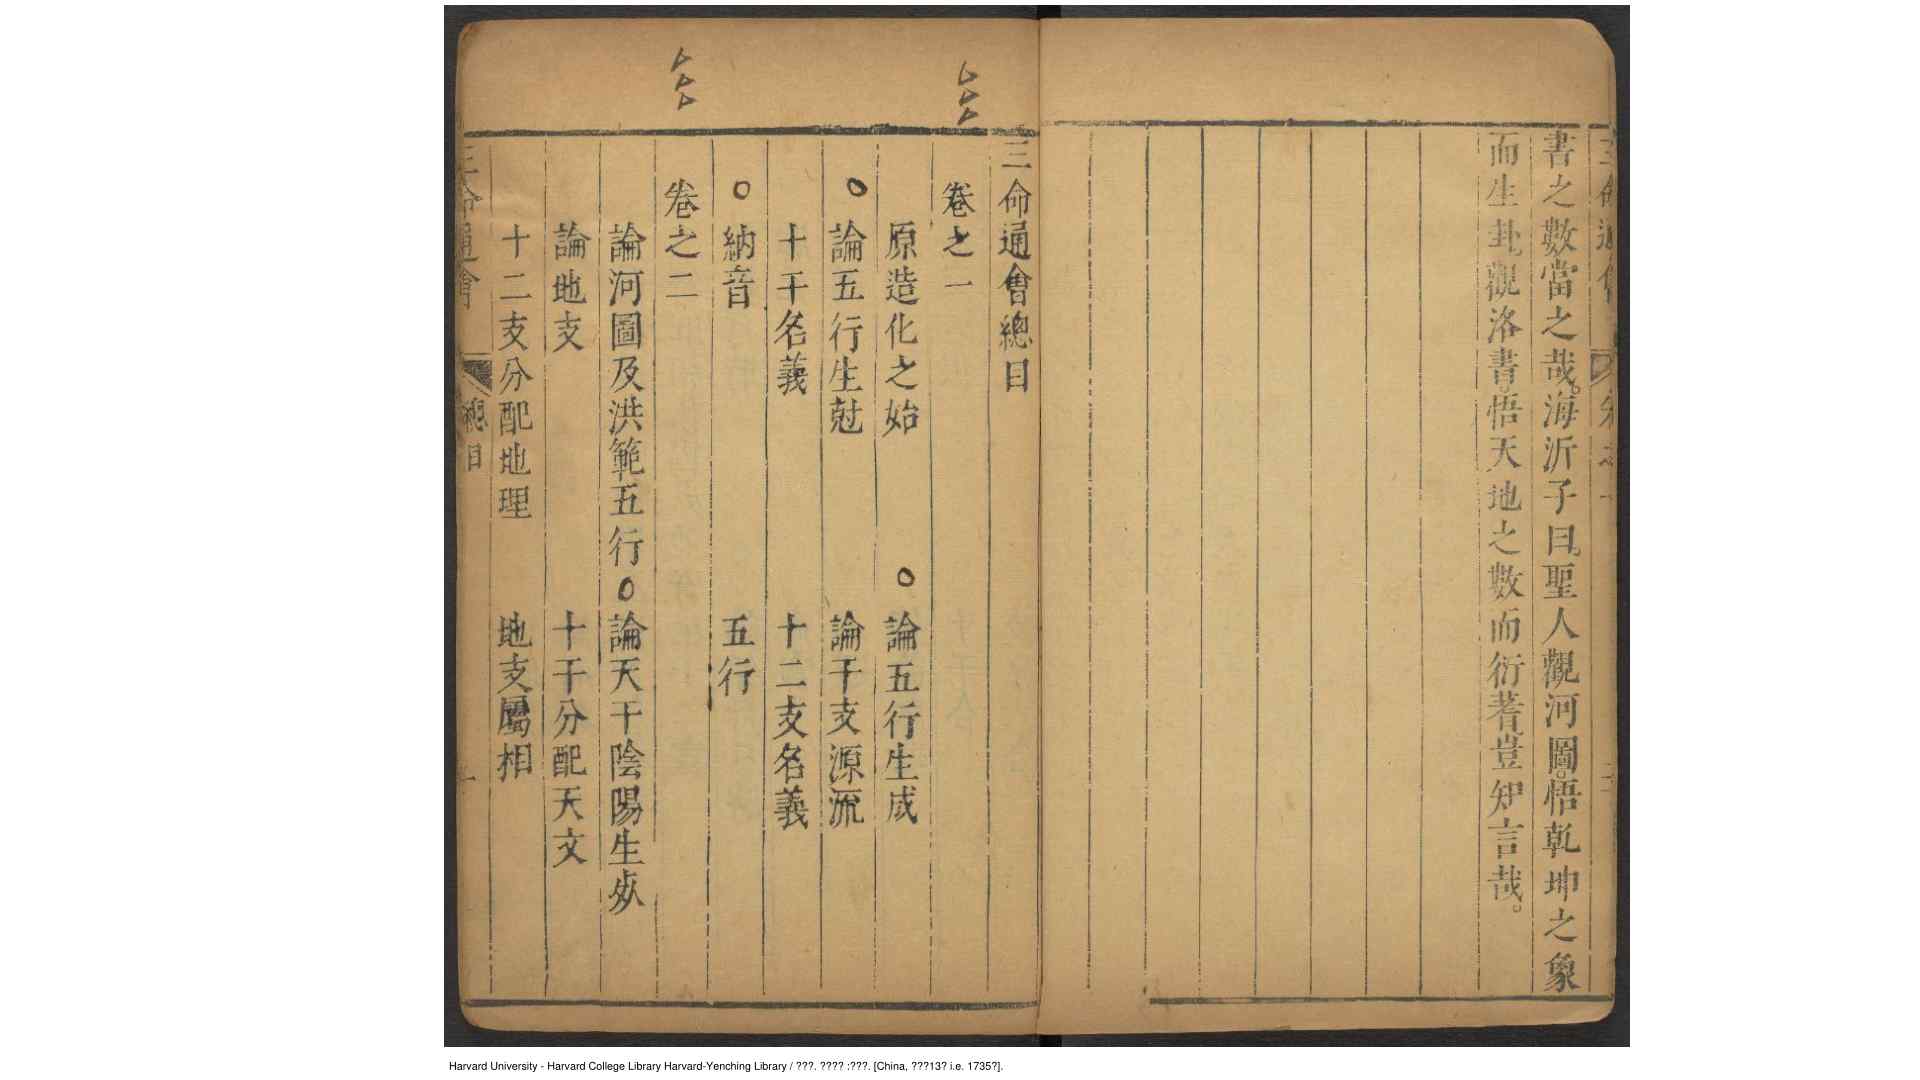 書之數當之哉。海沂子曰。聖人觀河圖。悟乾坤之象
而生卦。觀洛書。悟天地之數而衍蓍。豈知言哉。
三命通會總目
卷之一
原造化之始 ○論五行生成
○論五行生尅 論干支源流
十干名義 十二支名義
○納音 五行
卷之二
論河圖及洪範五行○論天干陰陽生死
論地支 十干分配天文
十二支分配地理 地支屬相
三命通會 總目 一
Harvard University - Harvard College Library Harvard-Yenching Library / ???. ???? :???. [China, ???13? i.e. 1735?].